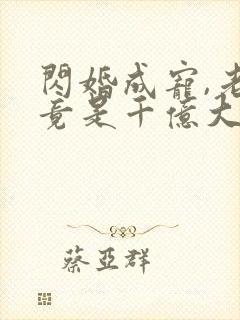 閃婚成寵,老
竟是千億大
蔡亞群